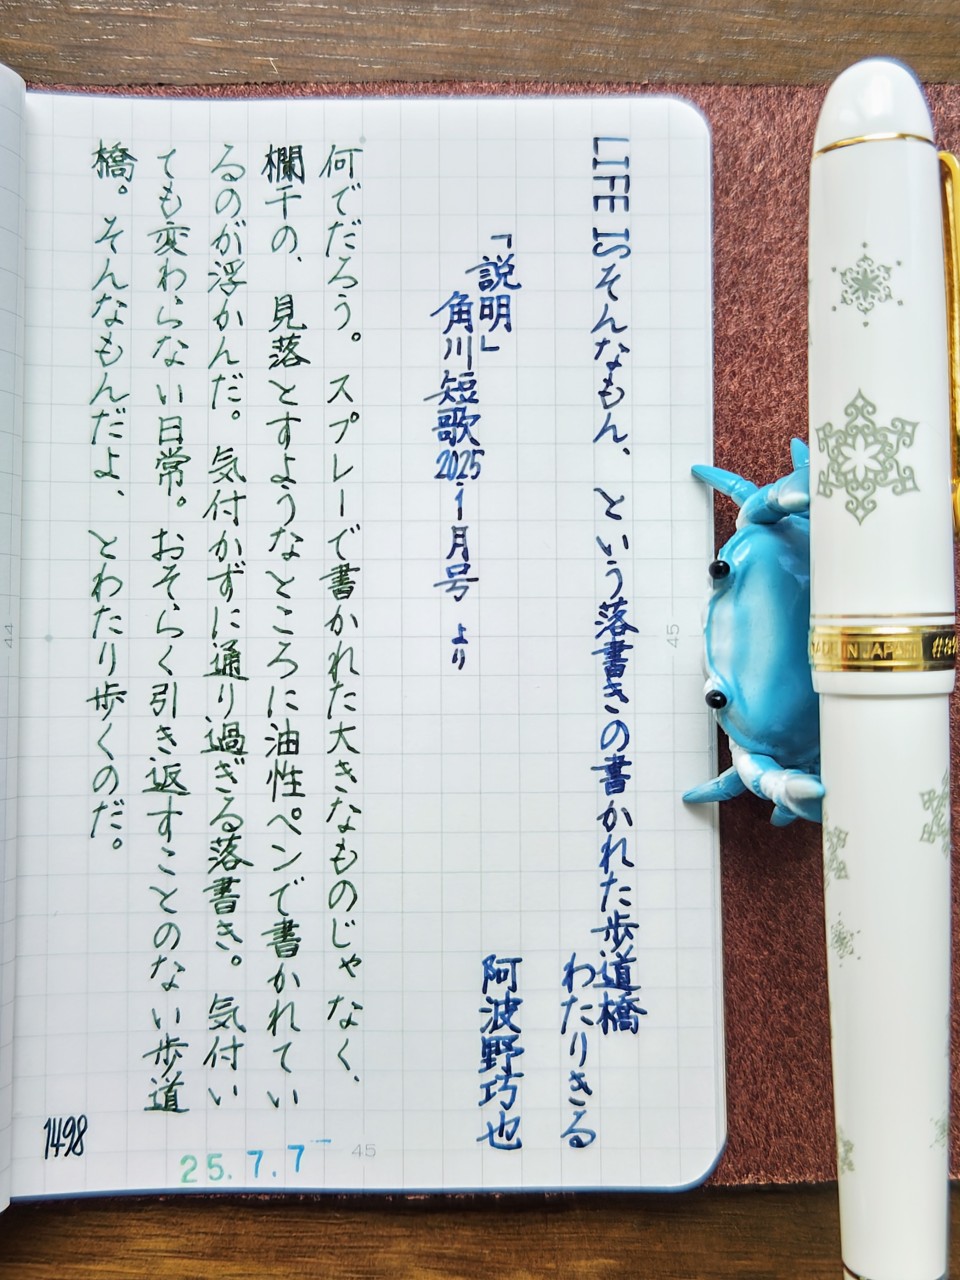 LIFE ISそんなもん、という落書きの書かれた歩道橋
わたりきる
「説明」
角川短歌2025年1月号 より
阿波野巧也
何でだろう。スプレーで書かれた大きなものじゃなく、
欄干の、見落とすようなところに油性ペンで書かれてい
るのが浮かんだ。気付かずに通り過ぎる落書き。気付い
ても変わらない日常。おそらく引き返すことのない歩道
橋。そんなもんだよ、とわたり歩くのだ。
1498
25.7.7
45
45
44
MADE IN JAPAN